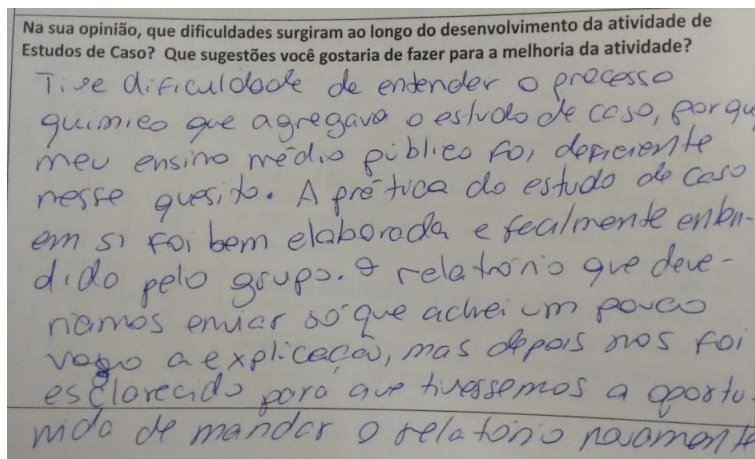 Na sua opinião, que dificuldades surgiram ao longo do desenvolvimento da atividade de
Estudos de Caso? Que sugestões você gostaria de fazer para a melhoria da atividade?
Tive dificuldade de entender o processo
quimico que agregava o estudo de caso, porqu
meu ensino médio público foi deficiente
nesse quesito. A prética do estudo de caso
em si foi bem elaborada e fecilmente enten-
dido pelo grupo. O relatório que deve-
riamos enviar só que achei um pouco
vago a explicação, mas depois nos foi
esclarecido para que tivessemos a oportu-
nida de mandar o relatório novamente